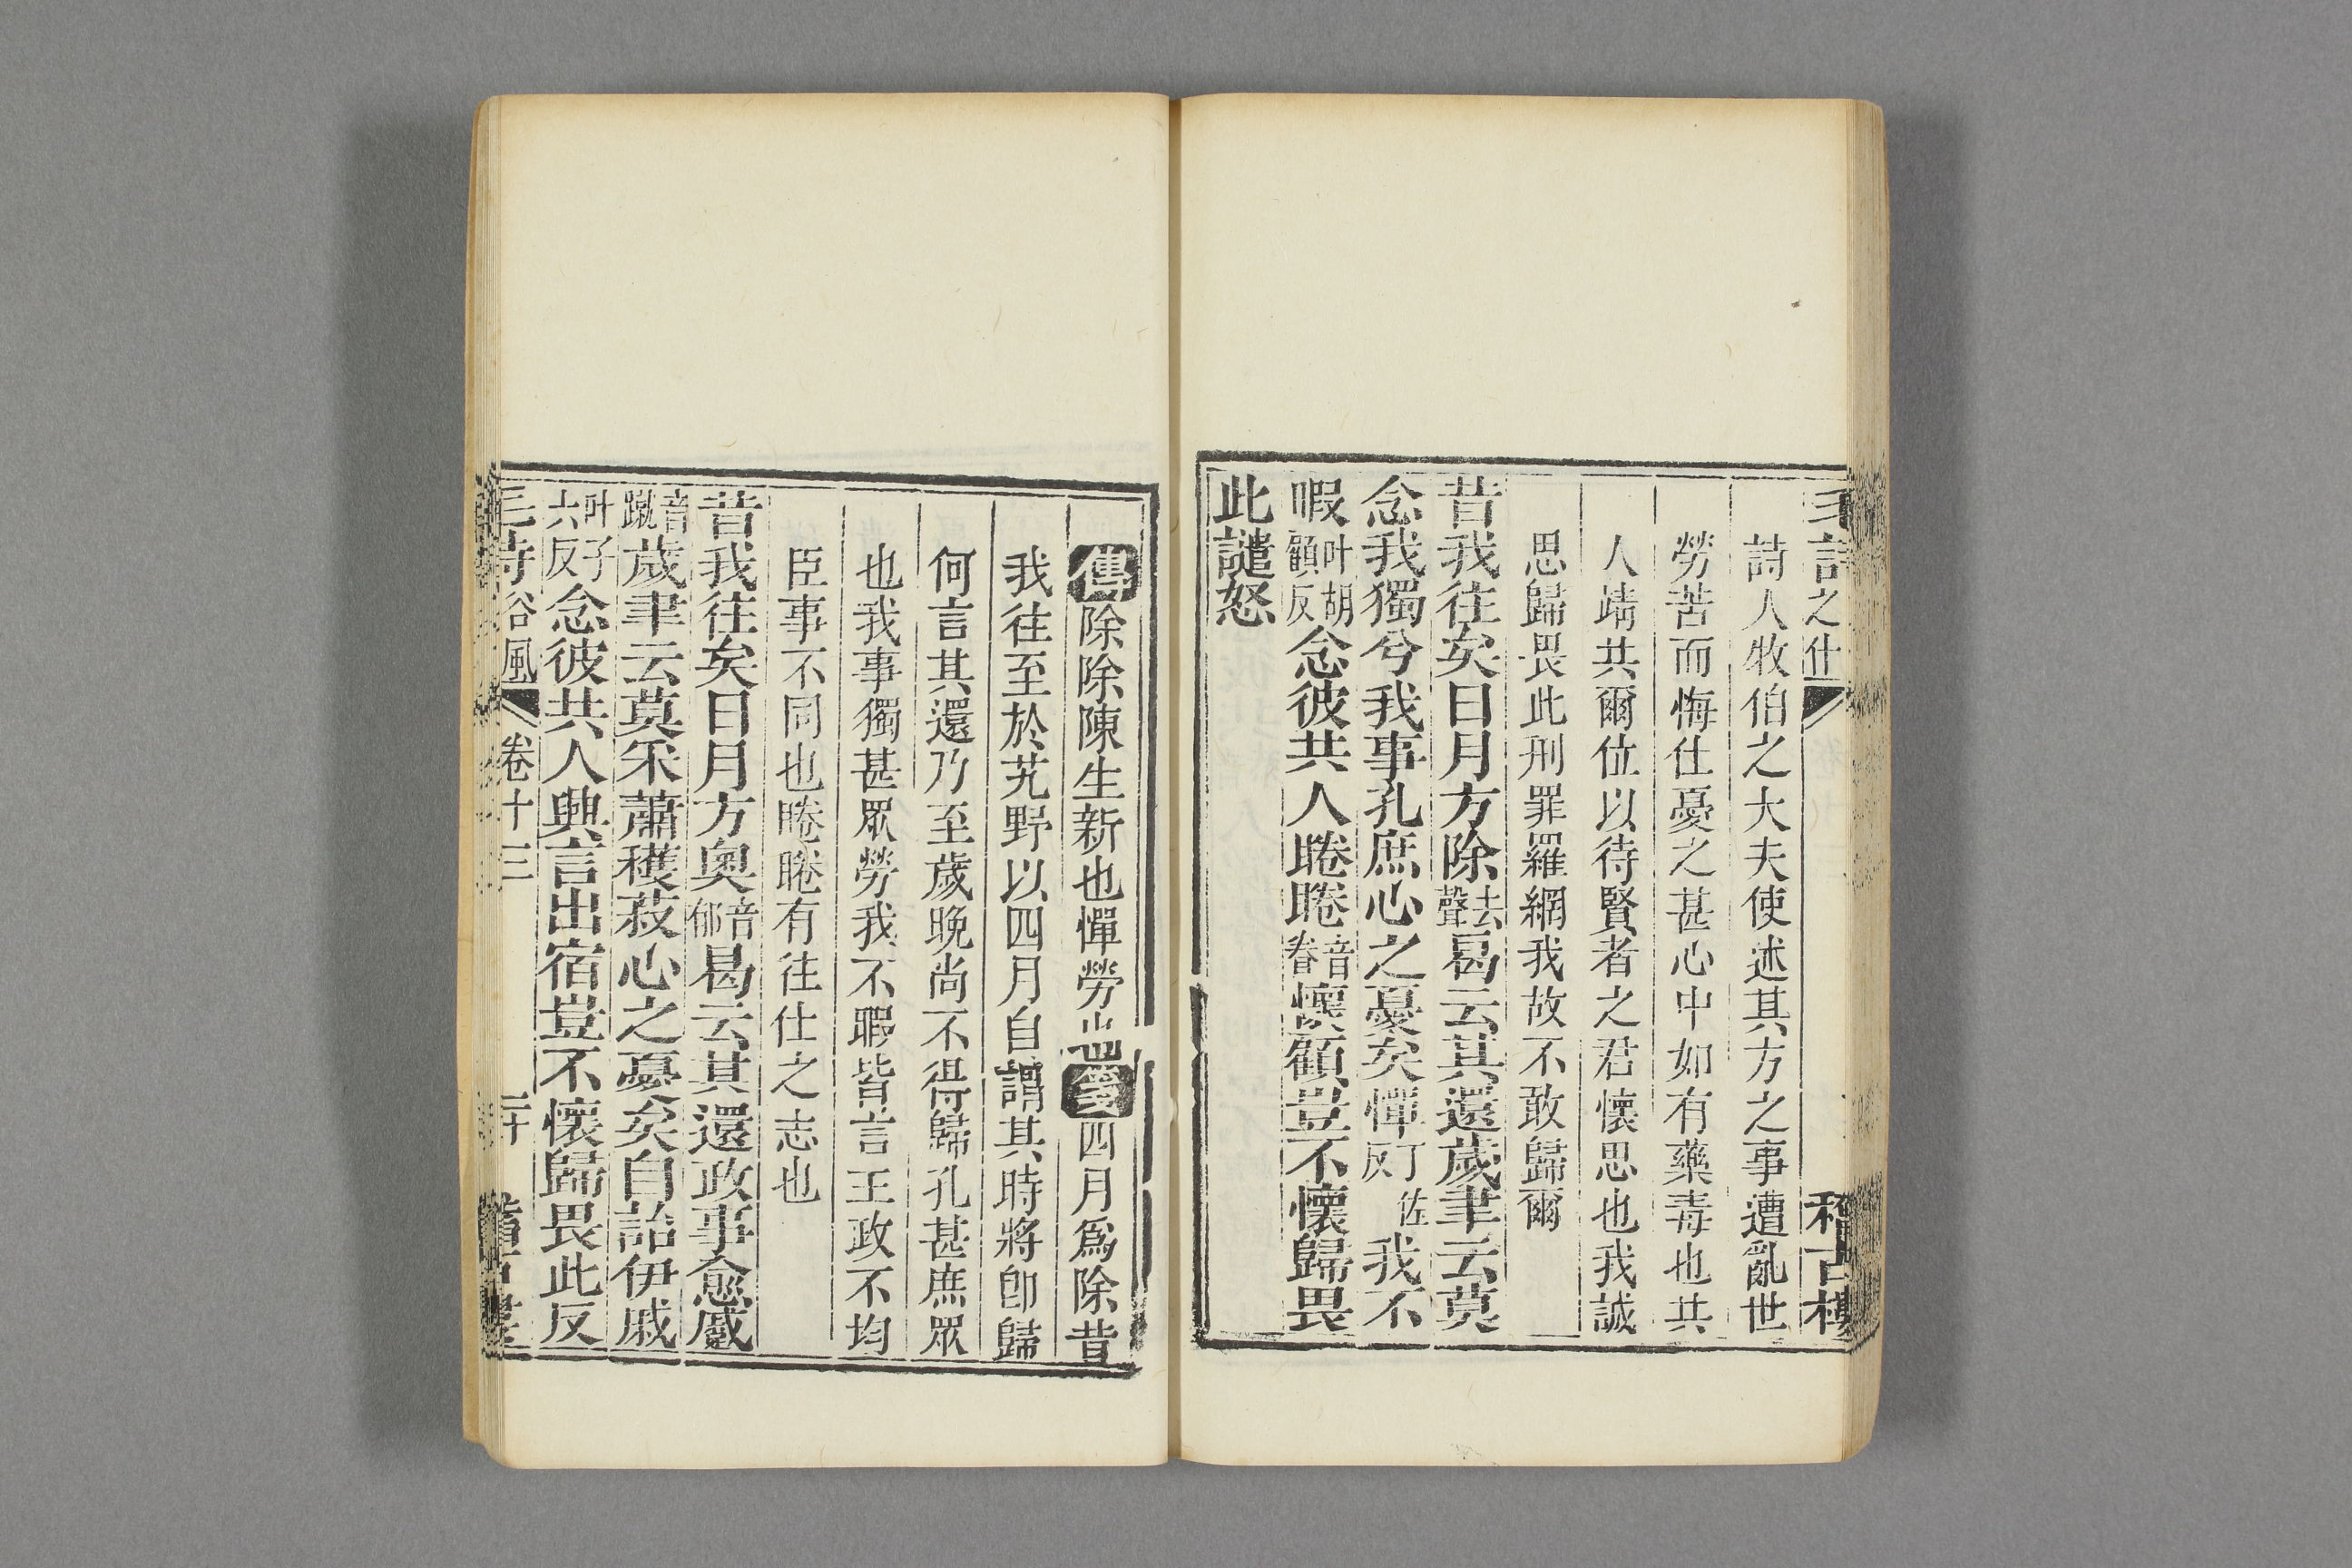 詩人牧伯之大夫使述其方之事遭亂世
勞苦而悔仕憂之甚心中如有藥毒也共
人靖共爾位以待賢者之君懷思也我誠
思歸畏此刑罪羅網我故不敢歸爾
昔我往矣日月方除去聲曷云其還歲聿云莫
念我獨兮我事孔庶心之憂矣憚丁佐反我不
暇叶胡顧反念彼共人睠睠音眷懷顧豈不懷歸畏
此譴怒
傳除除陳生新也憚勞也箋四月爲除昔
我往至於艽野以四月自謂其時將卽歸
何言其還乃至歲晚尚不得歸孔甚庶眾
也我事獨甚眾勞我不暇皆言王政不均
臣事不同也睠睠有往仕之志也
昔我往矣日月方奧音郁曷云其還政事愈蹙
音蹴歲聿云莫采蕭穫菽心之憂矣自詒伊戚
叶子六反念彼共人興言出宿豈不懷歸畏此反
毛詩谷風 卷十三 二十